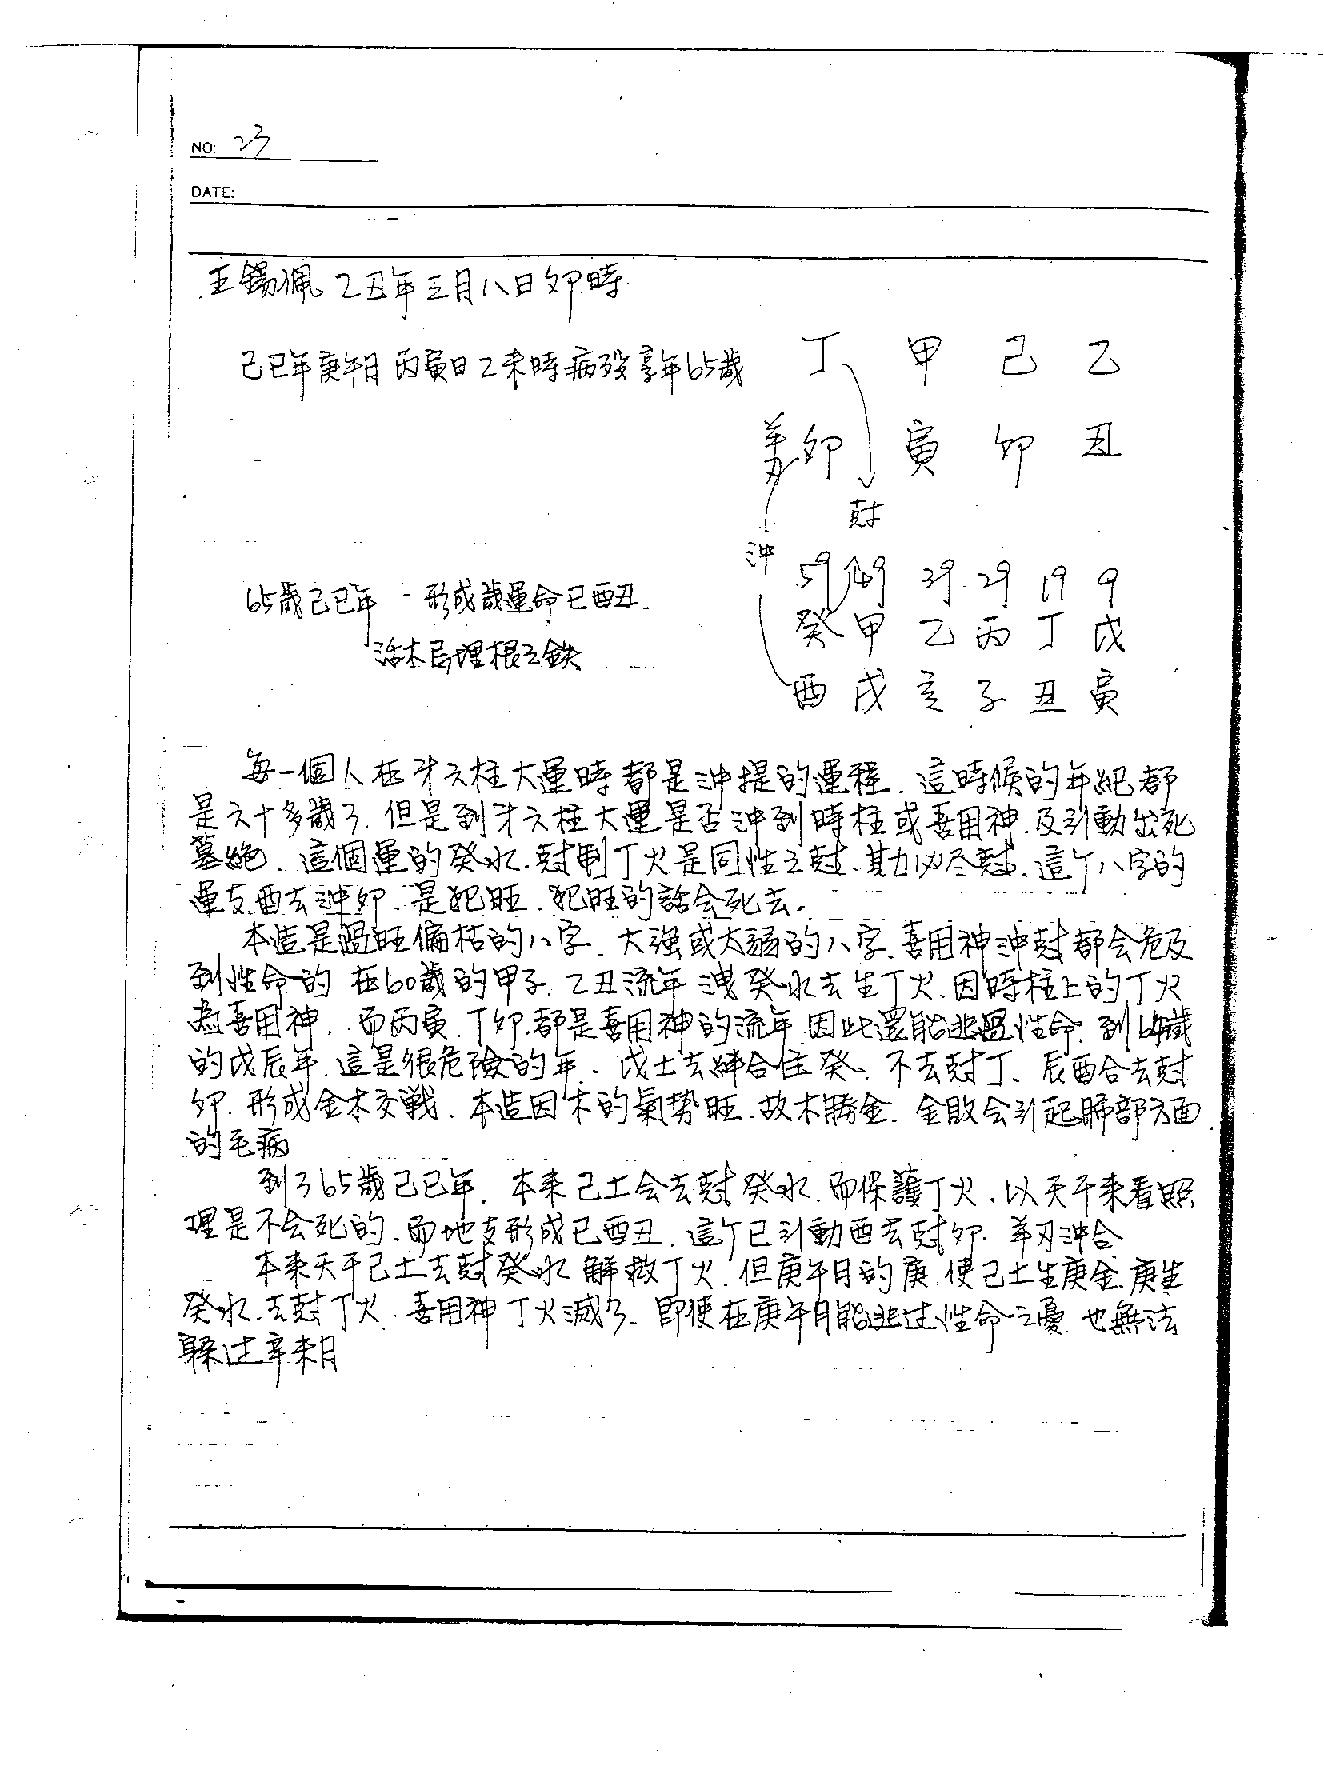 NO: 23
DATE:
王錫佩 乙丑年三月八日卯時
己巳年庚午月 丙寅日乙未時病歿享年65歲
丁 甲 己 乙
羊刃 卯 寅 卯 丑
尅
沖
59 49 39 29 19 9
癸 甲 乙 丙 丁 戊
酉 戌 亥 子 丑 寅
65歲己巳年 - 形成歲運命巳酉丑
每一個人在才六柱大運時都是沖提的運程、這時候的年紀都
是六十多歲了、但是到才六柱大運是否沖到時柱或喜用神、及引動出死
墓絕、這個運的癸水、尅制丁火是同性之尅、其力必尽尅、這个八字的
運支酉去沖卯、是犯旺、犯旺的話会死去。
本造是過旺偏枯的八字、太强或太弱的八字、喜用神沖尅都会危及
到性命的 在60歲的甲子、乙丑流年 洩癸水去生丁火、因時柱上的丁火
為喜用神、而丙寅、丁卯、都是喜用神的流年 因此還能逃過性命、到64歲
的戊辰年、這是很危險的年、戊土去絆合住癸、不去尅丁、辰酉合去尅
卯、形成金木交戰、本造因木的氣势旺、故木勝金、金敗会引起肺部方面
的毛病
到了65歲己巳年、本来己土会去尅癸水、而保護丁火、以天干来看照
理是不会死的、而地支形成巳酉丑、這个巳引動酉去尅卯、羊刃沖合
本来天干己土去尅癸水 解救丁火、但庚午月的庚、使己土生庚金、庚生
癸水、去尅丁火、喜用神丁火滅了、即使在庚午月能逃过性命之憂 也無法
躲过辛未月